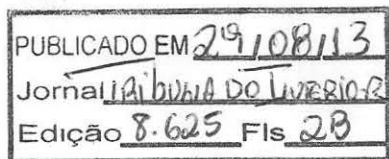 PUBLICADO EM 29/08/13
Jornal TRIBUNA DO INTERIOR
Edição 8.625 Fls 2B